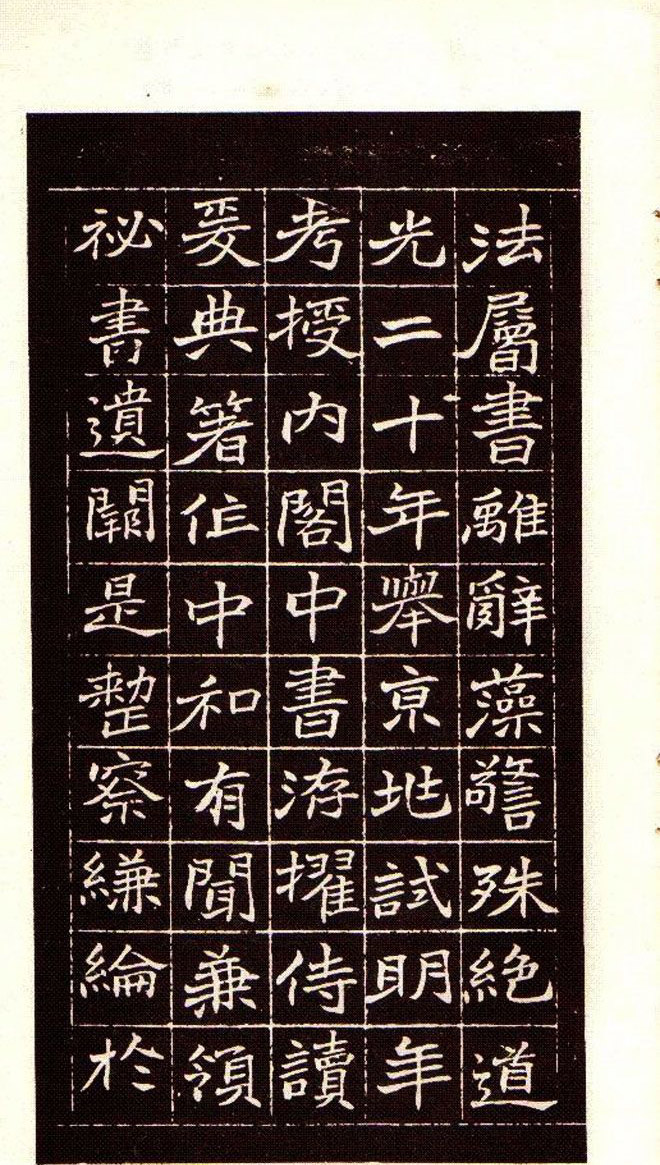 法層書離辭藻警殊絕道
光二十年舉亰兆試明年
考授内閣中書洊擢侍讀
爰典箸作中和有聞兼領
祕書遺闕是整察縑綸於